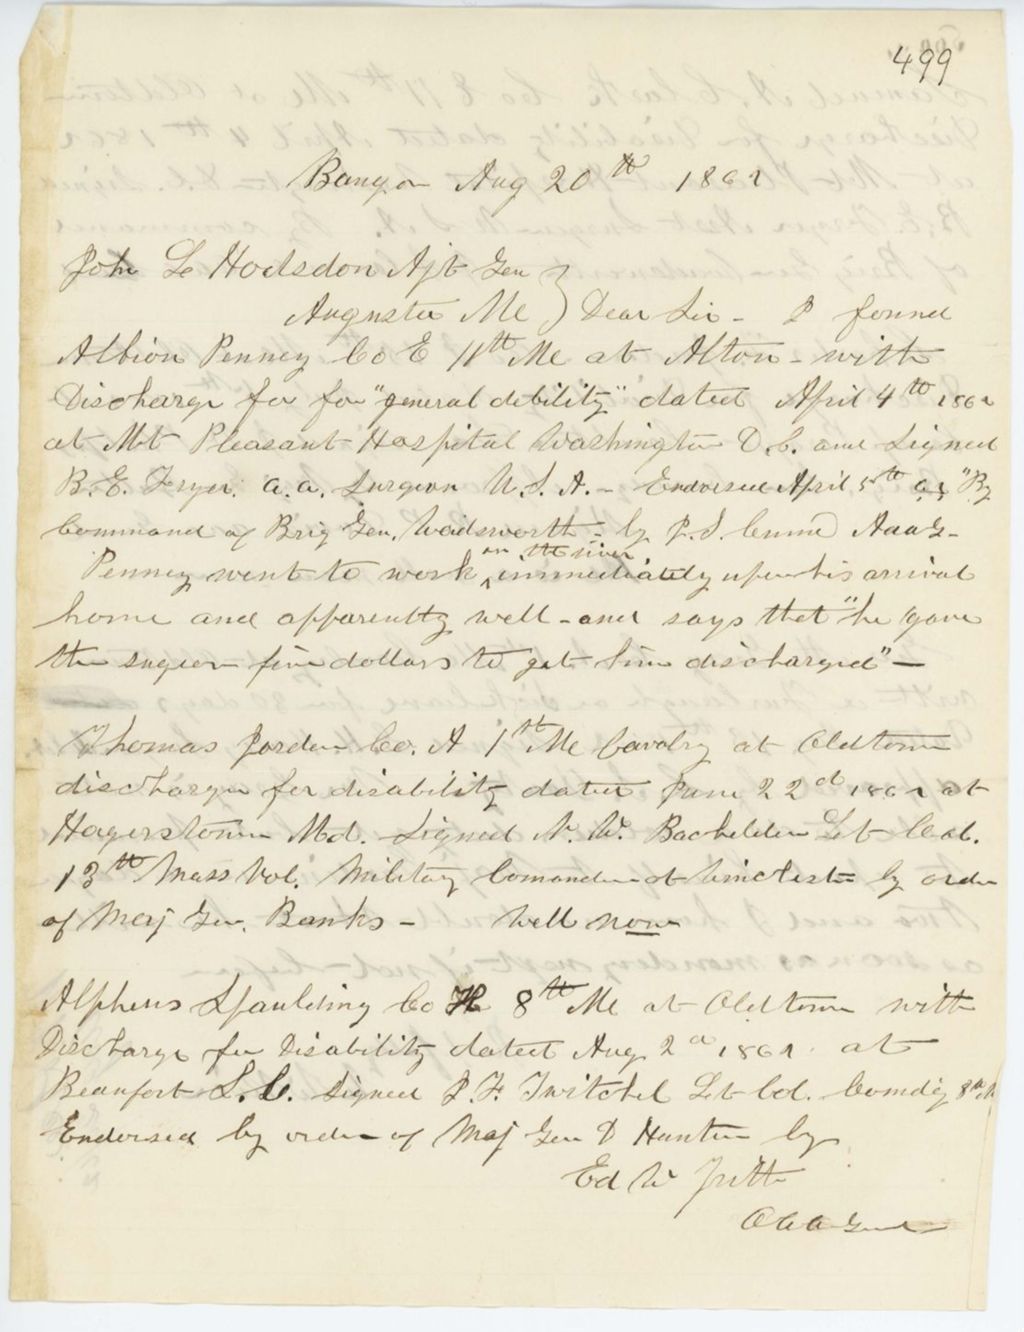 499
Bangor Aug 20th 1862
John L Hodsdon Ajt Gen
Augusta Me } Dear Sir - I found
Albion Penney Co E 11th Me at Alton - with
Discharge for for "general debility" dated April 4th 1862
at Mt Pleasant Hospital Washington D.C. and Signed
B. E. Fryer. a. a. Surgeon U. S. A. - Endorsed April 5th as "By
Command of Brig Gen. Wadsworth - by A.A.G -
Penney went to work on the river immediately upon his arrival
home and apparently well - and says that "he gave
the surgeon five dollars to get him discharged" -
Thomas Jorden Co. A 1st Me Cavalry at Oldtown
discharge for disability dated June 22d 1862 at
Hagerstown Md. Signed N. W. Bachelder Lt Col.
13th Mass Vol. Military Comander at by order
of Maj Gen. Banks - Well now
Alpheus Spaulding Co H 8th Me at Oldtown with
Discharge for Disability dated Aug 2d 1862 at
Beaufort S. C. Signed J. F. Twitchel Lt Col. Comdg 8th M
Endorsed by order of Maj Gen D Hunter by
Ed W
A A Genl